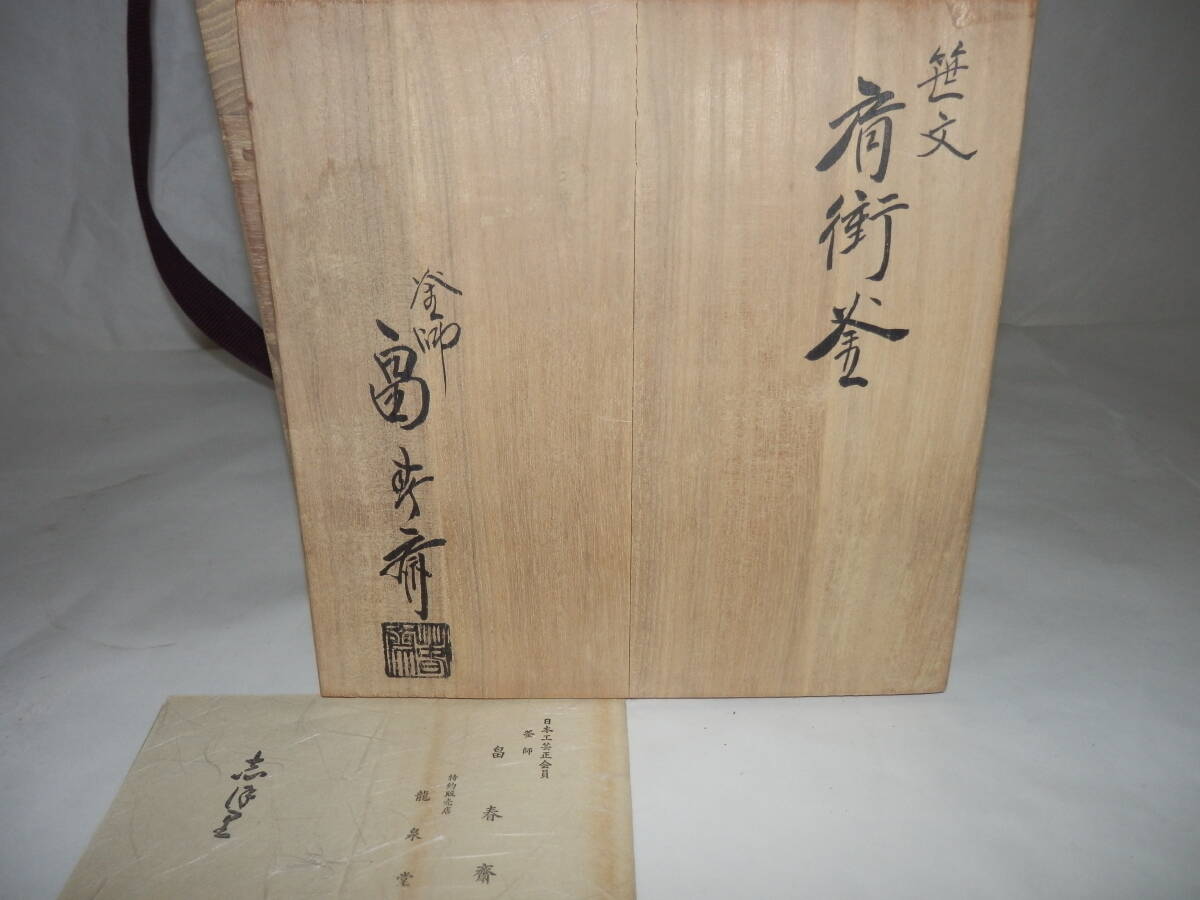 笹文
肩衝釜
釜師
畠春斎
日本工芸正会員
釜師
畠春齋
特約販売店
龍泉堂